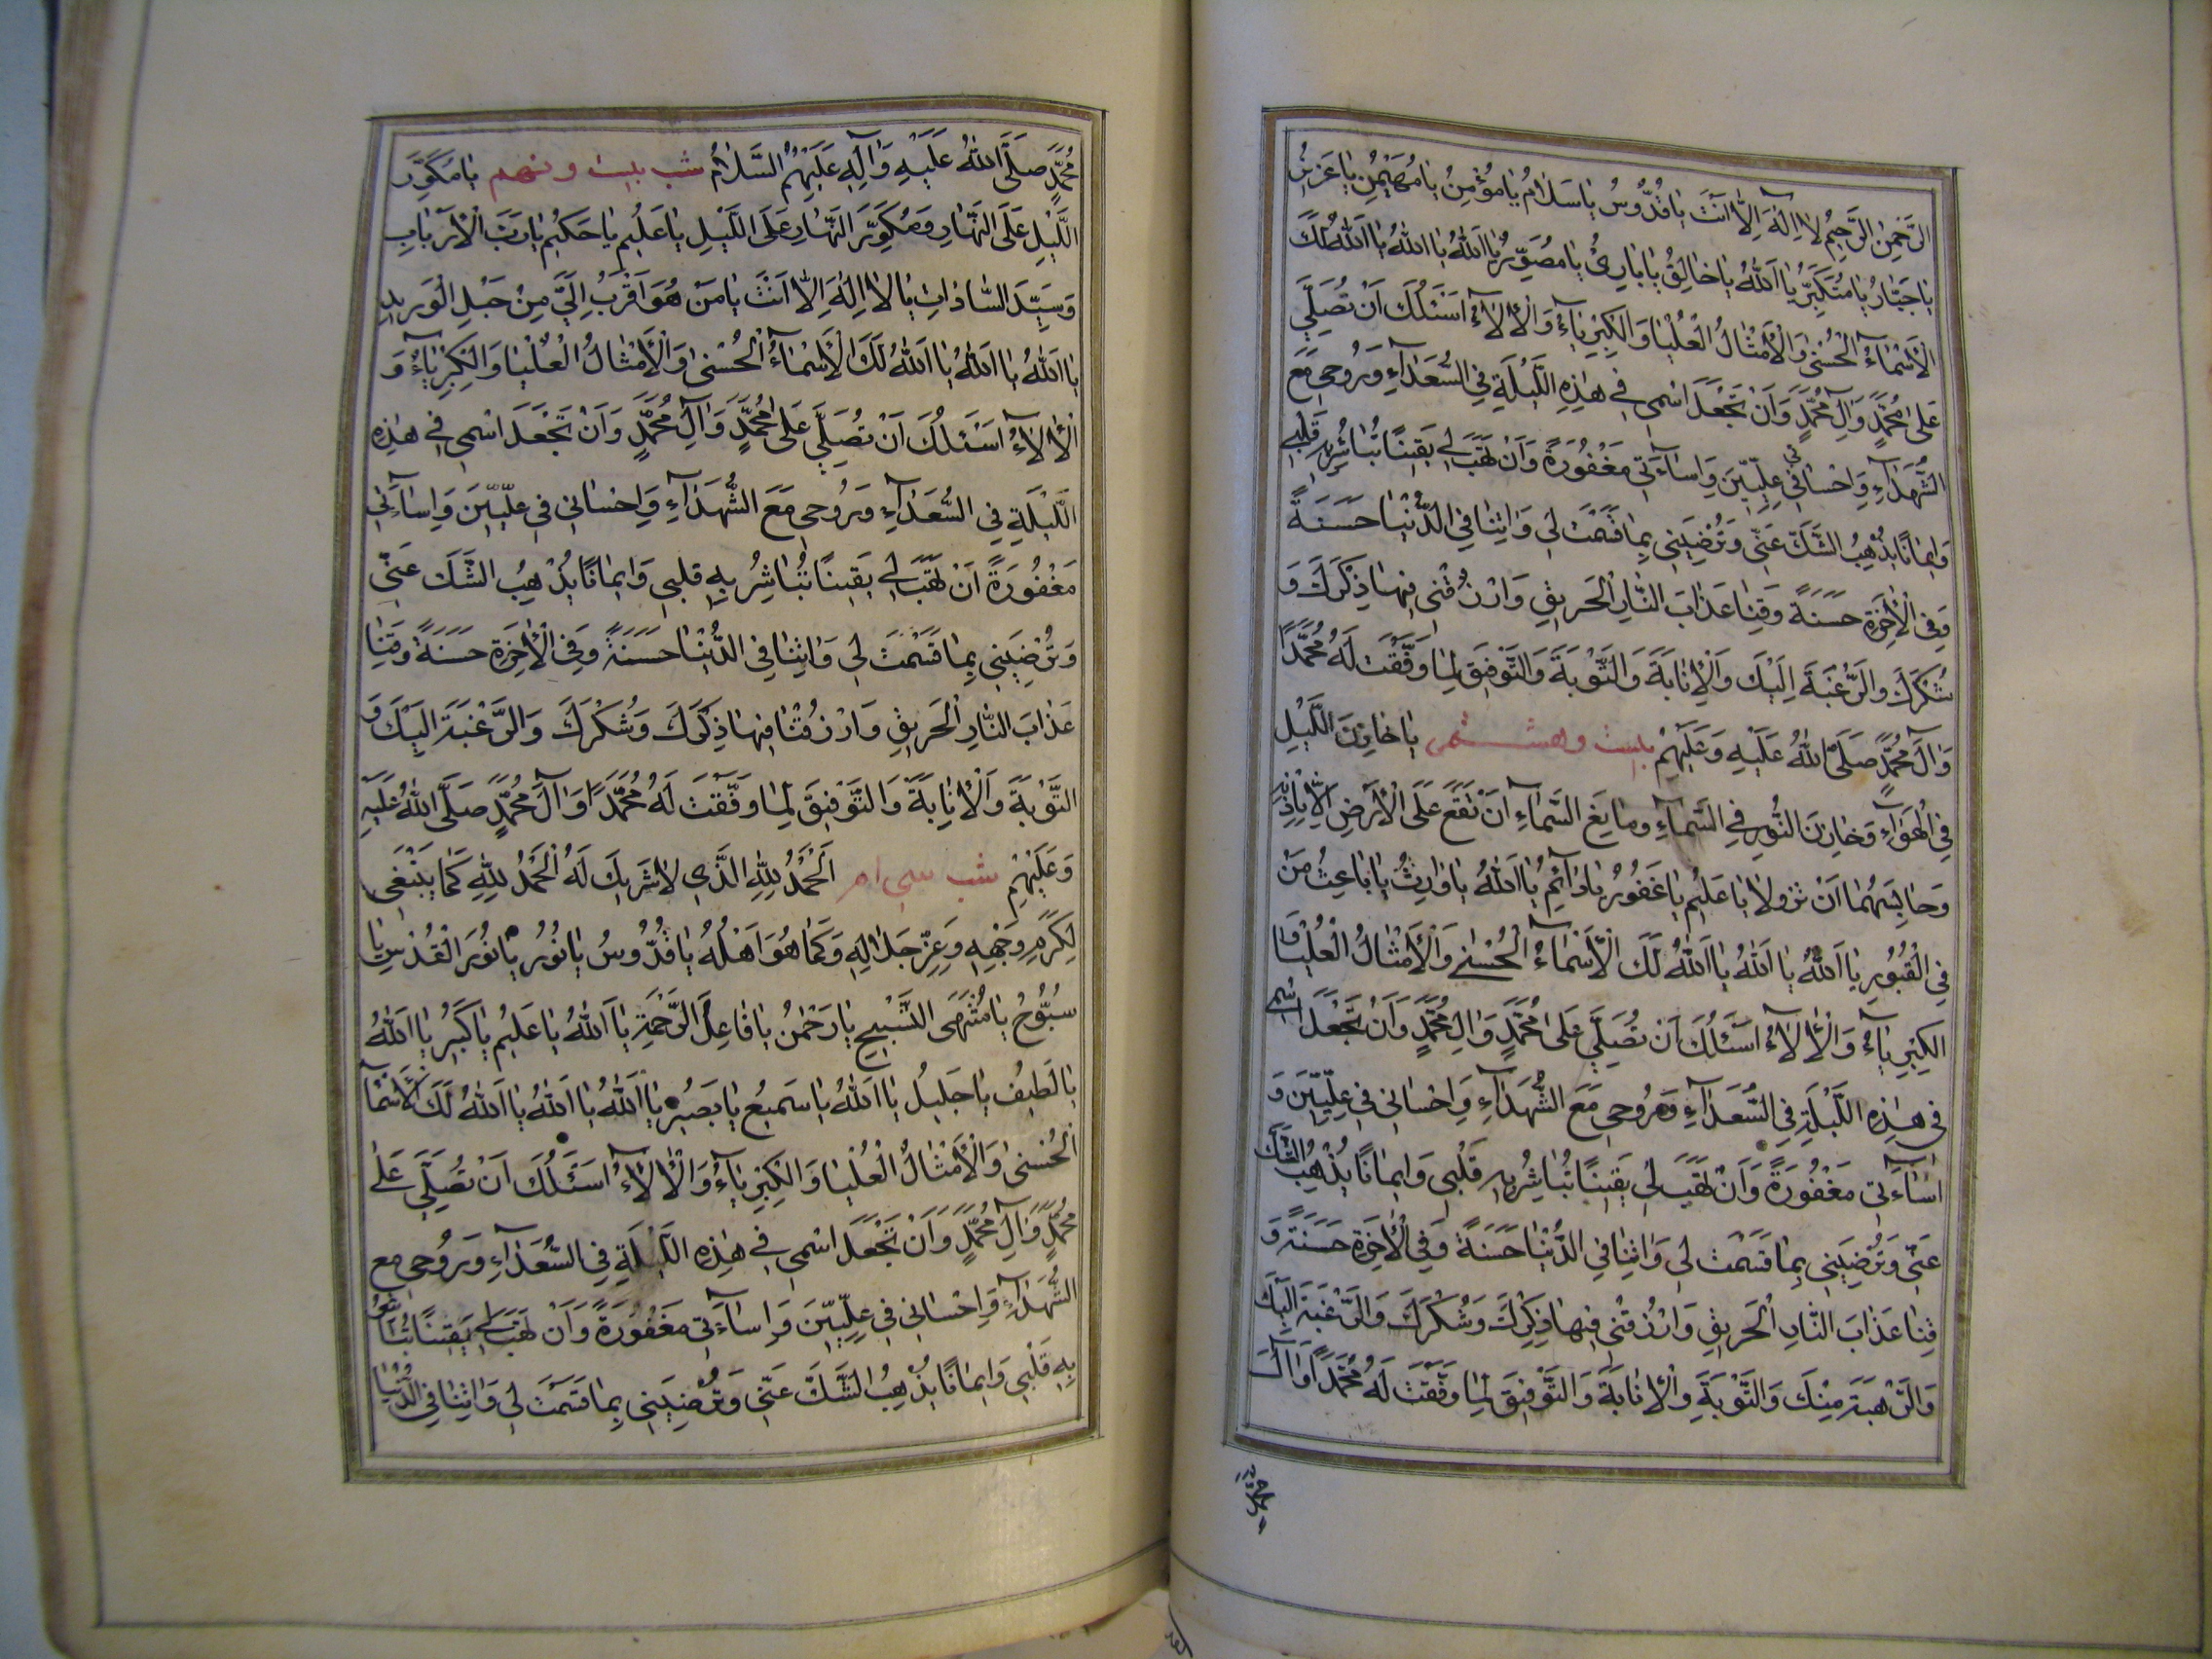 الرَّحْمنُ الرَّحِيمُ لا اِلهَ اِلاّ اَنْتَ يا قُدُّوسُ يا سَلامُ يا مُؤْمِنُ يا مُهَيْمِنُ يا عَزيزُ
يا جَبّارُ يا مُتَكَبِّرُ يا اَللهُ يا خالِقُ يا بارِئُ يا مُصَوِّرُ يا اَللهُ يا اَللهُ يا اَللهُ لَكَ
الْاَسْماءُ الْحُسْنى وَالْاَمْثالُ الْعُلْيا وَالْكِبْرِياءُ وَالْآلاءُ اَسْئَلُكَ اَنْ تُصَلِّيَ
عَلى مُحَمَّدٍ وَآلِ مُحَمَّدٍ وَاَنْ تَجْعَلَ اسْمى فى هذِهِ اللَّيْلَةِ فِى السُّعَداءِ وَرُوحى مَعَ
الشُّهَداءِ وَاِحْسانى فى عِلِّيّينَ وَاِساءَتى مَغْفُورَةً وَاَنْ تَهَبَ لى يَقينًا تُباشِرُ بِهِ قَلْبى
وَايمانًا يُذْهِبُ الشَّكَّ عَنّى وَتُرْضِيَنى بِما قَسَمْتَ لى وَاتِنا فِى الدُّنْيا حَسَنَةً
وَفِى الْاخِرَةِ حَسَنَةً وَقِنا عَذابَ النّارِ الْحَريقِ وَارْزُقْنى فيها ذِكْرَكَ وَ
شُكْرَكَ وَالرَّغْبَةَ اِلَيْكَ وَالْاِنابَةَ وَالتَّوْبَةَ وَالتَّوْفيقَ لِما وَفَّقْتَ لَهُ مُحَمَّدًا
وَآلَ مُحَمَّدٍ صَلَّى اللهُ عَلَيْهِ وَعَلَيْهِمْ بيست وهشتم يا خازِنَ اللَّيْلِ
فِى الْهَواءِ وَخازِنَ النُّورِ فِى السَّماءِ وَمانِعَ السَّماءِ اَنْ تَقَعَ عَلَى الْاَرْضِ اِلّا بِاِذْنِهِ
وَحابِسَهُما اَنْ تَزُولا يا عَليمُ يا غَفُورُ يا دائِمُ يا اَللهُ يا وارِثُ يا باعِثُ مَنْ
فِى الْقُبُورِ يا اَللهُ يا اَللهُ يا اَللهُ لَكَ الْاَسْماءُ الْحُسْنى وَالْاَمْثالُ الْعُلْيا وَ
الْكِبْرِياءُ وَالْآلاءُ اَسْئَلُكَ اَنْ تُصَلِّيَ عَلى مُحَمَّدٍ وَالِ مُحَمَّدٍ وَاَنْ تَجْعَلَ اسْمى
فى هذِهِ اللَّيْلَةِ فِى السُّعَداءِ وَرُوحى مَعَ الشُّهَداءِ وَاِحْسانى فى عِلِّيّينَ وَ
اِساءَتى مَغْفُورَةً وَاَنْ تَهَبَ لى يَقينًا تُباشِرُ بِهِ قَلْبى وَايمانًا يُذْهِبُ الشَّكَّ
عَنّى وَتُرْضِيَنى بِما قَسَمْتَ لى وَاتِنا فِى الدُّنْيا حَسَنَةً وَفِى الْاخِرَةِ حَسَنَةً وَ
قِنا عَذابَ النّارِ الْحَريقِ وَارْزُقْنى فيها ذِكْرَكَ وَشُكْرَكَ وَالرَّغْبَةَ اِلَيْكَ
وَالرَّهْبَةَ مِنْكَ وَالتَّوْبَةَ وَالْاِنابَةَ وَالتَّوْفيقَ لِما وَفَّقْتَ لَهُ مُحَمَّدًا وَآلَ
مُحَمَّدٍ صَلَّى اللهُ عَلَيْهِ وَآلِهِ عَلَيْهِمُ السَّلامُ شب بيست ونهم يا مُكَوِّرَ
اللَّيْلِ عَلَى النَّهارِ وَمُكَوِّرَ النَّهارِ عَلَى اللَّيْلِ يا عَليمُ يا حَكيمُ يا رَبَّ الْاَرْبابِ
وَسَيِّدَ السّاداتِ يا لا اِلهَ اِلّا اَنْتَ يا مَنْ هُوَ اَقْرَبُ اِلَيَّ مِنْ حَبْلِ الْوَريدِ
يا اَللهُ يا اَللهُ يا اَللهُ لَكَ الْاَسْماءُ الْحُسْنى وَالْاَمْثالُ الْعُلْيا وَالْكِبْرِياءُ وَ
الْآلاءُ اَسْئَلُكَ اَنْ تُصَلِّيَ عَلى مُحَمَّدٍ وَآلِ مُحَمَّدٍ وَاَنْ تَجْعَلَ اسْمى فى هذِهِ
اللَّيْلَةِ فِى السُّعَداءِ وَرُوحى مَعَ الشُّهَداءِ وَاِحْسانى فى عِلِّيّينَ وَاِساءَتى
مَغْفُورَةً اَنْ تَهَبَ لى يَقينًا تُباشِرُ بِهِ قلبى وَايمانًا يُذْهِبُ الشَّكَ عَنّى
وَتُرْضِيَنى بِما قَسَمْتَ لى وَاتِنا فِى الدُّنْيا حَسَنَةً وَفِى الْاخِرَةِ حَسَنَةً وَقِنا
عَذابَ النّارِ الْحَريقِ وَارْزُقْنا فيها ذِكْرَكَ وَشُكْرَكَ وَالرَّغْبَةَ اِلَيْكَ وَ
التَّوْبَةَ وَالْاِنابَةَ وَالتَّوْفيقَ لِما وَفَّقْتَ لَهُ مُحَمَّدًا وَآلَ مُحَمَّدٍ صَلَّى اللهُ عَلَيْهِ
وَعَلَيْهِمْ شب سى ام اَلْحَمْدُ لِلّهِ الَّذى لا شَريكَ لَهُ الْحَمْدُ لِلّهِ كَما يَنْبَغى
لِكَرَمِ وَجْهِهِ وَعِزِّ جَلالِهِ وَكَما هُوَ اَهْلُهُ يا قُدُّوسُ يا نُورُ يا نُورَ الْقُدْسِ يا
سُبُّوحُ يا مُنْتَهَى التَّسْبيحِ يا رَحْمنُ يا فاعِلَ الرَّحْمَةِ يا اَللهُ يا عَليمُ يا كَبيرُ يا اَللهُ
يا لَطيفُ يا جَليلُ يا اَللهُ يا سَميعُ يا بَصيرُ يا اَللهُ يا اَللهُ يا اَللهُ لَكَ الْاَسْما
الْحُسْنى وَالْاَمْثالُ الْعُلْيا وَالْكِبْرِياءُ وَالْآلاءُ اَسْئَلُكَ اَنْ تُصَلِّيَ عَلى
مُحَمَّدٍ وَآلِ مُحَمَّدٍ وَاَنْ تَجْعَلَ اسْمى فى هذِهِ اللَّيْلَةِ فِى السُّعَداءِ وَرُوحى مع
الشُّهَداءِ وَاِحْسانى فى عِلِّيّينَ وَاِساءَتى مَغْفُورَةً وَاَنْ تَهَبَ لى يَقينًا تُباشِرُ
بِهِ قَلْبى وَايمانًا يُذْهِبُ الشَّكَّ عَنّى وَتُرْضِيَنى بِما قَسَمْتَ لى وَاتِنا فِى الدُّنْيا